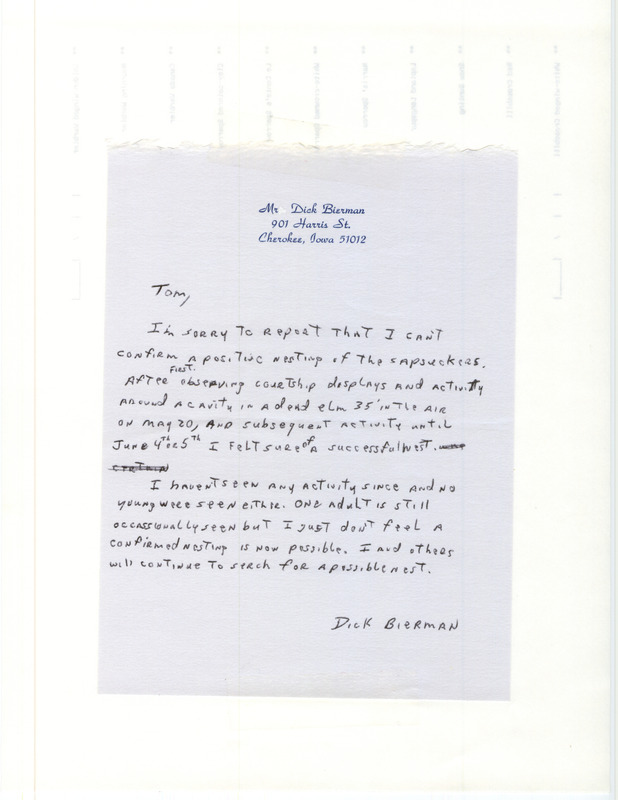 Mr Dick Bierman
901 Harris St.
Cherokee, Iowa 51012
Tom,
I'm sorry to report that I can't
confirm a positive nesting of the sapsuckers.
First.
After observing courtship displays and activity
around a cavity in a dead elm 35' in the air
on May 20, and subsequent activity until
June 4th or 5th I felt sure of a successful nest.
I haven't seen any activity since and no
young were seen either. One adult is still
occassionally seen but I just don't feel a
confirmed nesting is now possible. I and others
will continue to serch for a possible nest.
Dick Bierman